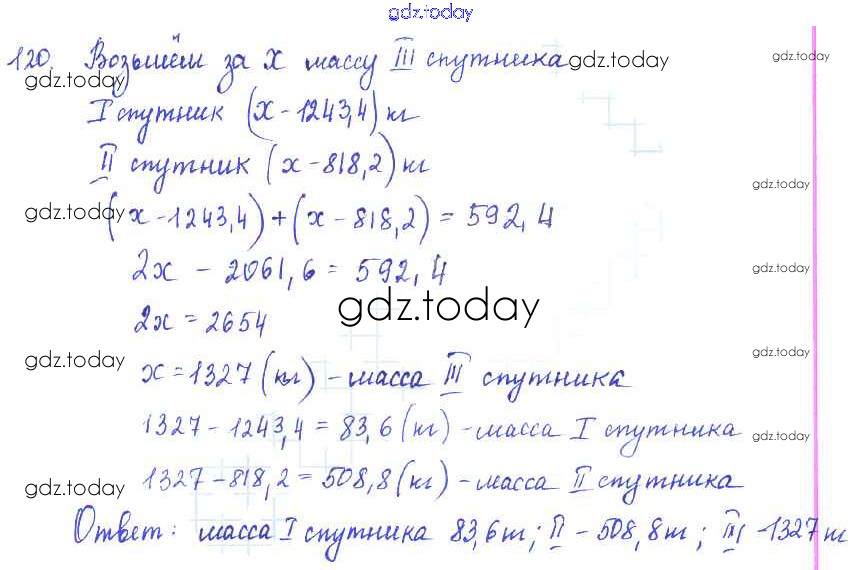 gdz.today
120. Возьмём за x массу III спутника gdz.today gdz.today
gdz.today
I спутник (x - 1243,4) кг
II спутник (x - 818,2) кг
gdz.today
gdz.today (x - 1243,4) + (x - 818,2) = 592,4
2x - 2061,6 = 592,4 gdz.today
gdz.today
2x = 2654
gdz.today
gdz.today x = 1327 (кг) - масса III спутника
1327 - 1243,4 = 83,6 (кг) - масса I спутника gdz.today
1327 - 818,2 = 508,8 (кг) - масса II спутника
gdz.today gdz.today
Ответ: масса I спутника 83,6 кг; II - 508,8 кг; III - 1327 кг